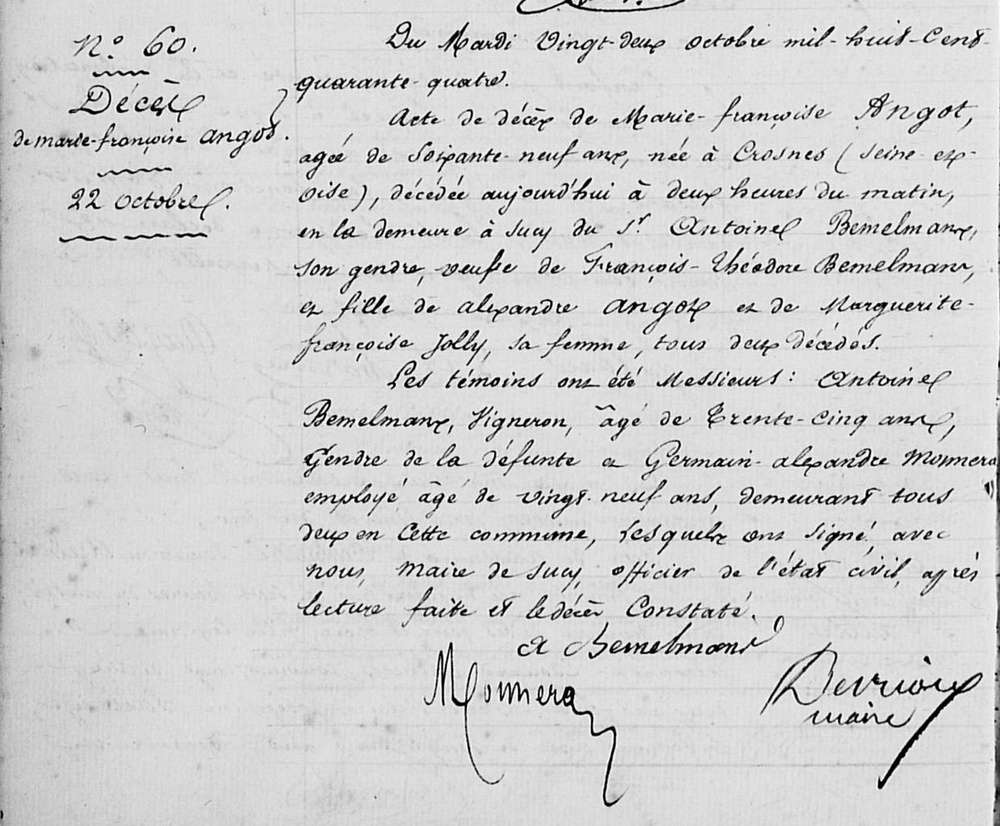 N° 60.
Décès
de marie-françoise angot.
22 octobre.
Du Mardi vingt-deux octobre mil-huit-cent-
quarante-quatre.
Acte de décès de Marie-françoise Angot,
agée de soixante-neuf ans, née à Crosnes (seine-et-
oise), décédée aujourd'hui à deux heures du matin,
en la demeure à sucy du Sr. Antoine Bemelmans,
son gendre, veuve de François-théodore Bemelmans,
et fille de alexandre angot et de Marguerite-
françoise Jolly, sa femme, tous deux décédés.
Les témoins ont été Messieurs : Antoine
Bemelmans, Vigneron, âgé de trente-cinq ans,
Gendre de la défunte et Germain-alexandre Monnera
employé âgé de vingt-neuf ans, demeurant tous
deux en cette commune, lesquels ont signé, avec
nous, Maire de sucy, officier de l'état civil, après
lecture faite et le décès Constaté.
A Bemelmans
Monnera
maire